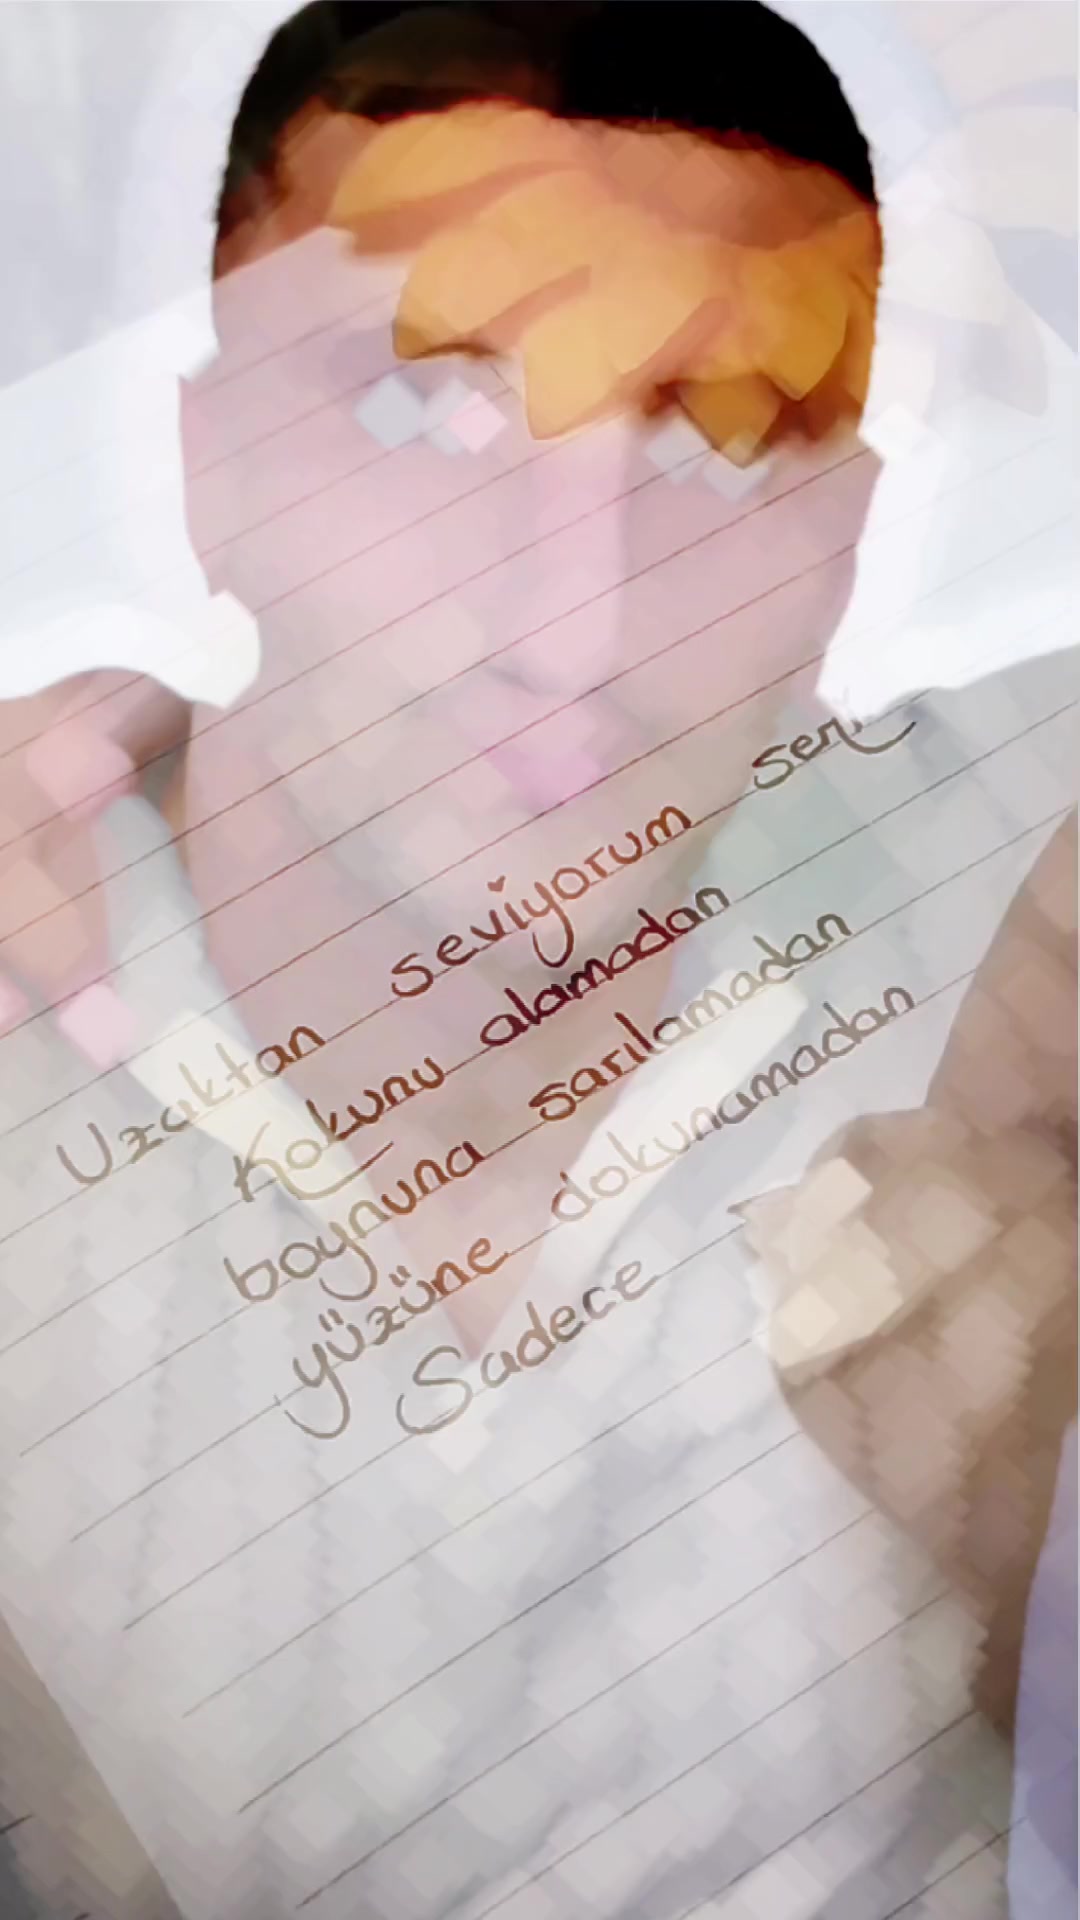 Uzaktan seviyorum seni
Kokunu alamadan
boynuna sarılamadan
yüzüne dokunamadan
Sadece